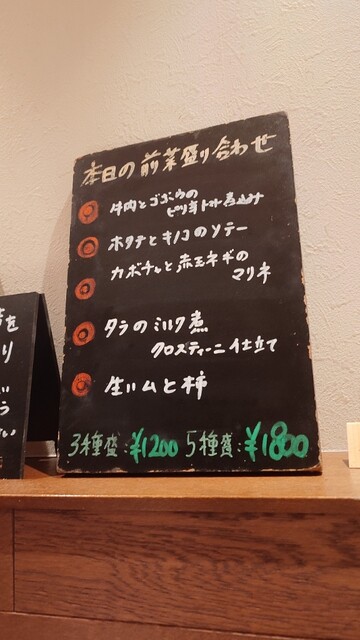 本日の前菜盛り合わせ
牛肉とゴボウの
ピリ辛トマト煮込み
ホタテとキノコのソテー
カボチャと赤玉ネギの
マリネ
タラのミルク煮
クロスティーニ仕立て
生ハムと柿
3種盛:¥1200 5種盛:¥1800
を
り
い
う
い